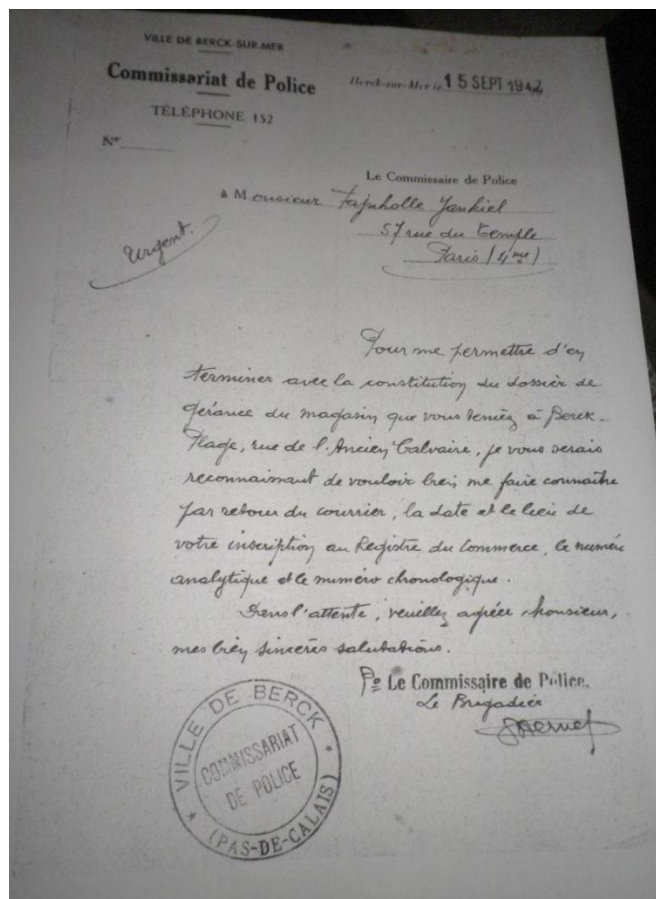 VILLE DE BERCK-SUR-MER
Commissariat de Police
Berck-sur-Mer le 15 SEPT 1942
TÉLÉPHONE 152
N°
Le Commissaire de Police
à Monsieur Fajnholle Jankiel
57 rue du Temple
Paris (4me)
Urgent.
Pour me permettre d'en
terminer avec la constitution du dossier de
gérance du magasin que vous teniez à Berck-
Plage, rue de l'Ancien Calvaire, je vous serais
reconnaissant de vouloir bien me faire connaître
par retour du courrier, la date et le lieu de
votre inscription au Registre du Commerce, le numéro
analytique et le numéro chronologique.
Dans l'attente, veuillez agréer, Monsieur,
mes bien sincères salutations.
Pr Le Commissaire de Police.
Le Brigadier
VILLE DE BERCK
COMMISSARIAT
DE POLICE
(PAS-DE-CALAIS)